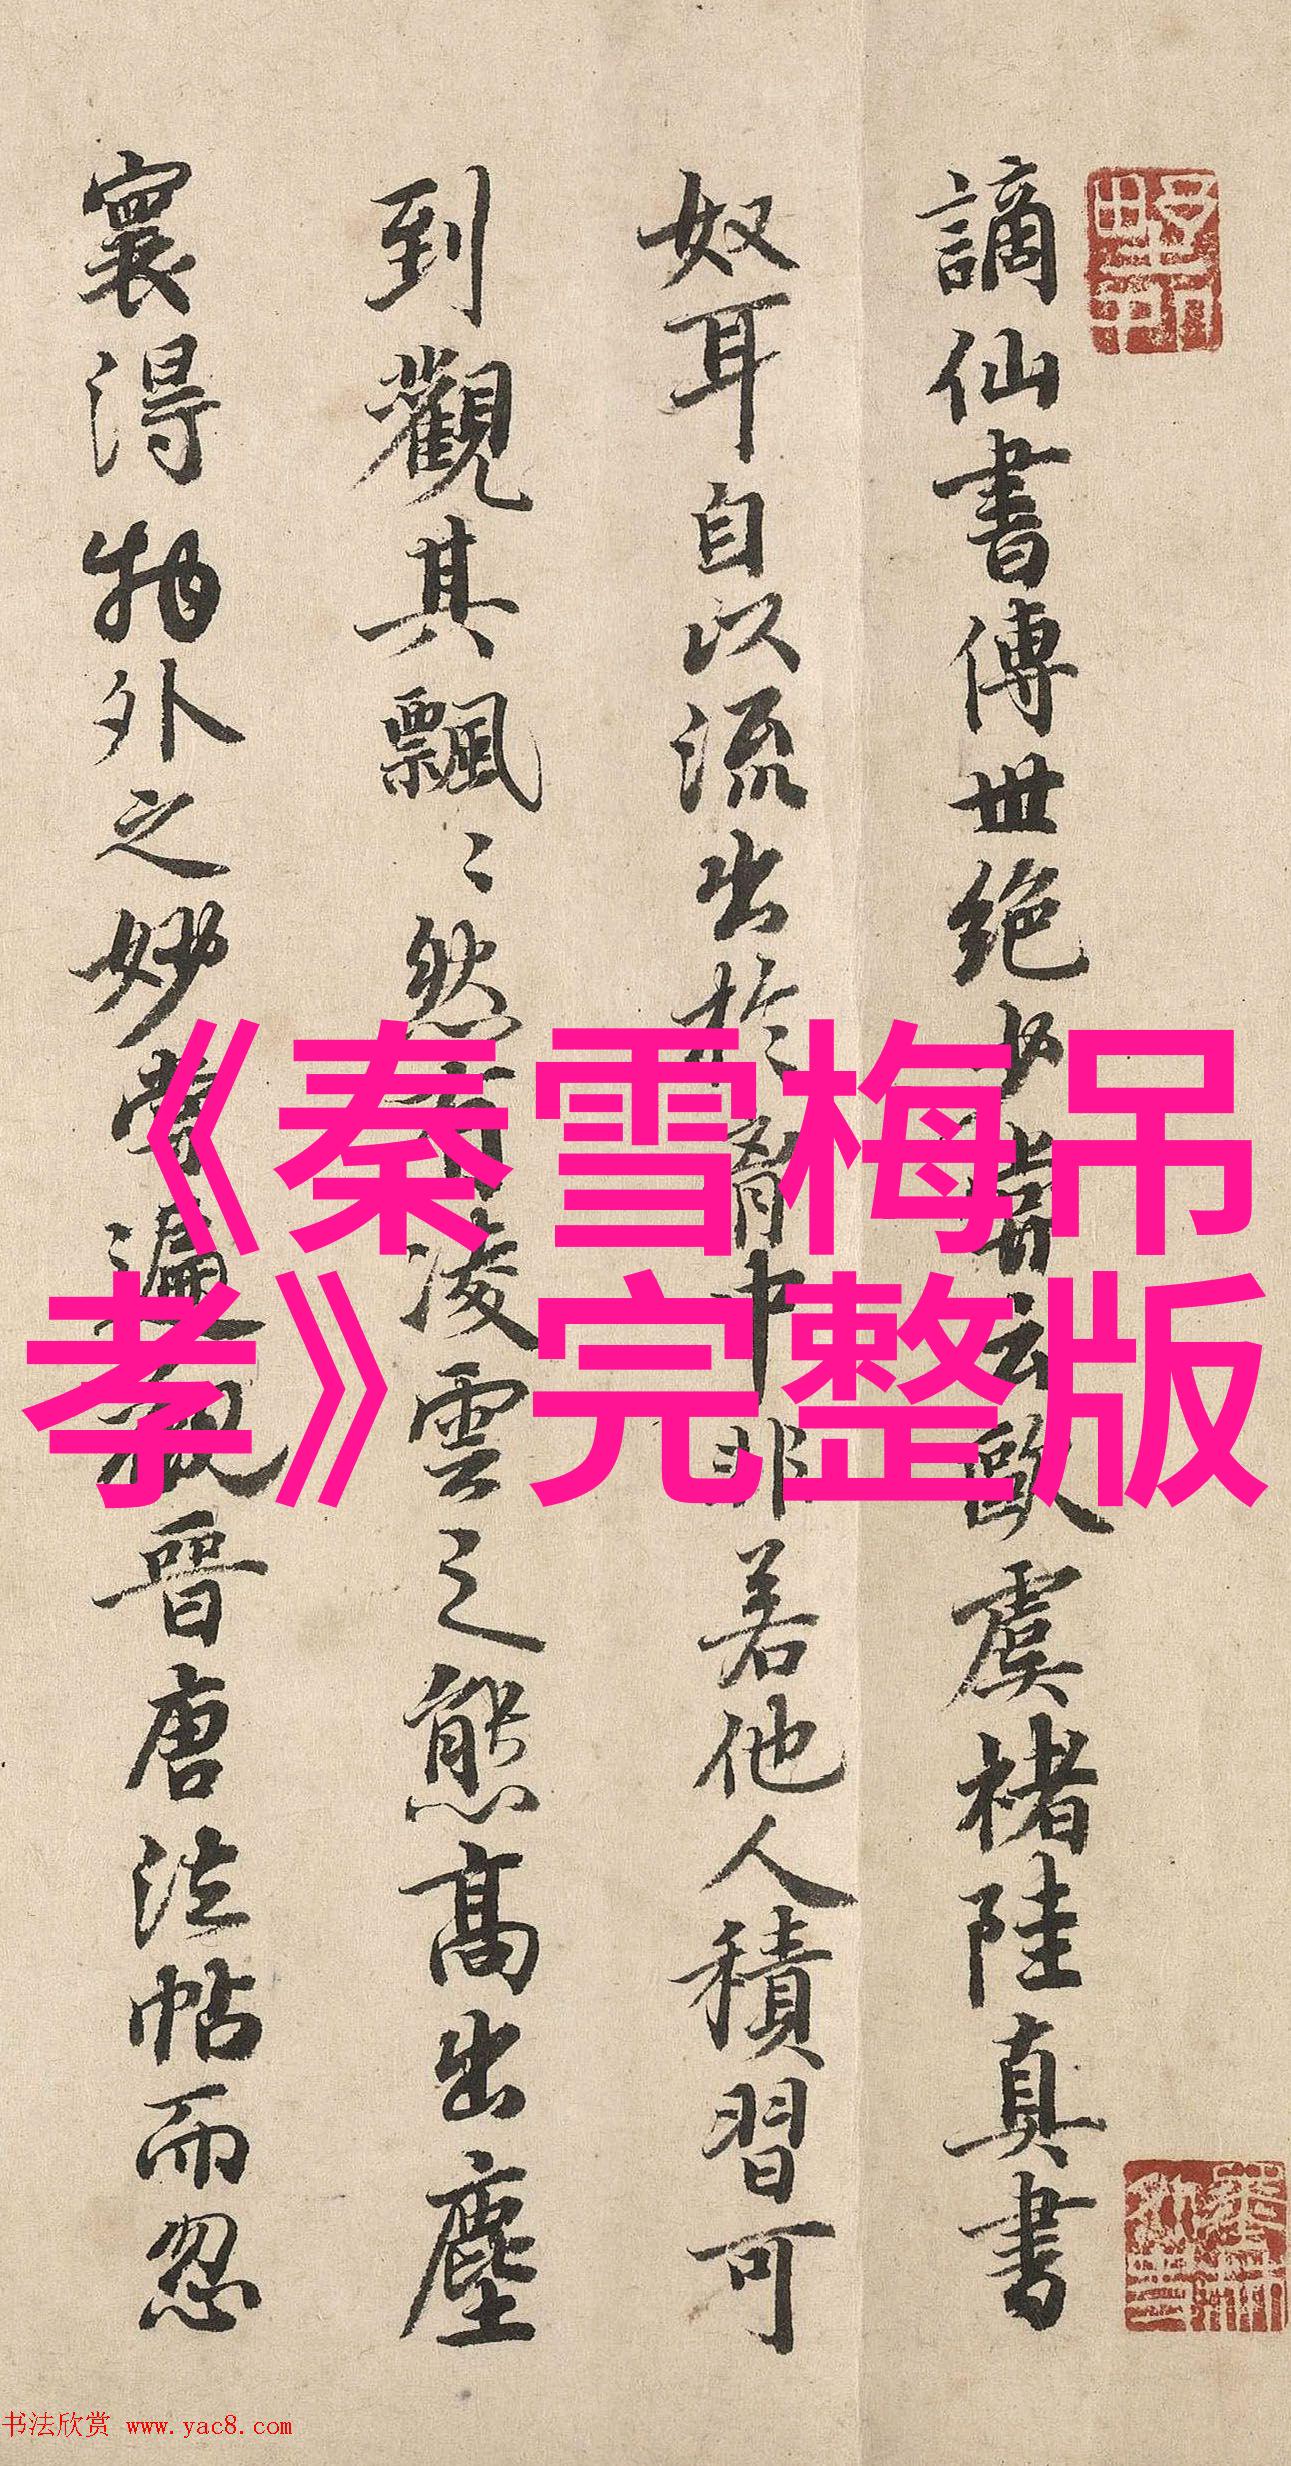 謫仙書傳世絕少嘗云歐虞褚陸真書
奴耳自以流出於胷中非若他人積習可
到觀其飄〻然有凌雲之態高出塵
寰得物外之妙嘗遍觀晉唐法帖而忽
《秦雪梅吊
孝》完整版
书法欣赏 www.yac8.com